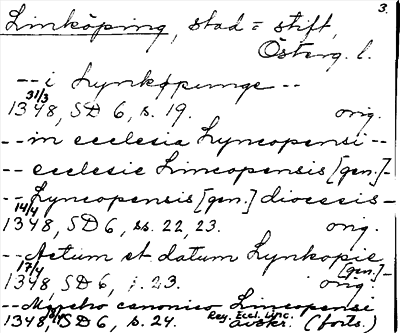 3.
Linköping, stad = stift,
Österg. l.
-- i Lynkøpunge --
31/3
1348, SD 6, s. 19. orig.
-- in ecclesia Lyncopensi --
-- ecclesie Lincopensis [gen.] -
-- Lyncopensis [gen.] diocesis -
14/4
1348, SD 6, ss. 22, 23. orig.
-- Actum et datum Lynkopie
[gen.] -
17/4
1348 SD 6, s. 23. orig.
-- canonico Lincopensi
Reg. Eccl. Linc.
1348, SD 6, s. 24. avskr. (forts.)